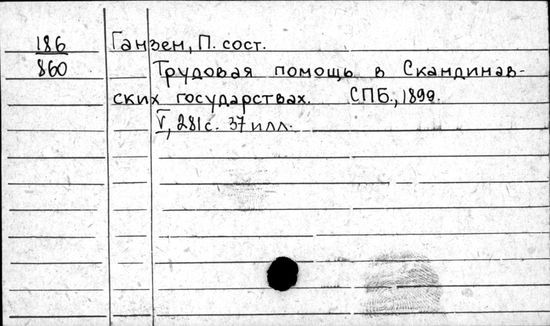 186
860
Ганзен, П. сост.
Трудовая помощь в Скандинав-
ских государствах. СПБ., 1899.
V, 281 с. 37 илл.